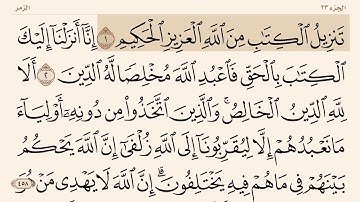 الجزء ٢٣
الزمر
تَنزِيلُ ٱلْكِتَٰبِ مِنَ ٱللَّهِ ٱلْعَزِيزِ ٱلْحَكِيمِ ١ إِنَّآ أَنزَلْنَآ إِلَيْكَ
ٱلْكِتَٰبَ بِٱلْحَقِّ فَٱعْبُدِ ٱللَّهَ مُخْلِصًا لَّهُ ٱلدِّينَ ٢ أَلَا
لِلَّهِ ٱلدِّينُ ٱلْخَالِصُ ۚ وَٱلَّذِينَ ٱتَّخَذُوا۟ مِن دُونِهِۦٓ أَوْلِيَآءَ
مَا نَعْبُدُهُمْ إِلَّا لِيُقَرِّبُونَآ إِلَى ٱللَّهِ زُلْفَىٰٓ إِنَّ ٱللَّهَ يَحْكُمُ
بَيْنَهُمْ فِى مَا هُمْ فِيهِ يَخْتَلِفُونَ ۗ إِنَّ ٱللَّهَ لَا يَهْدِى مَنْ
٤٥٨